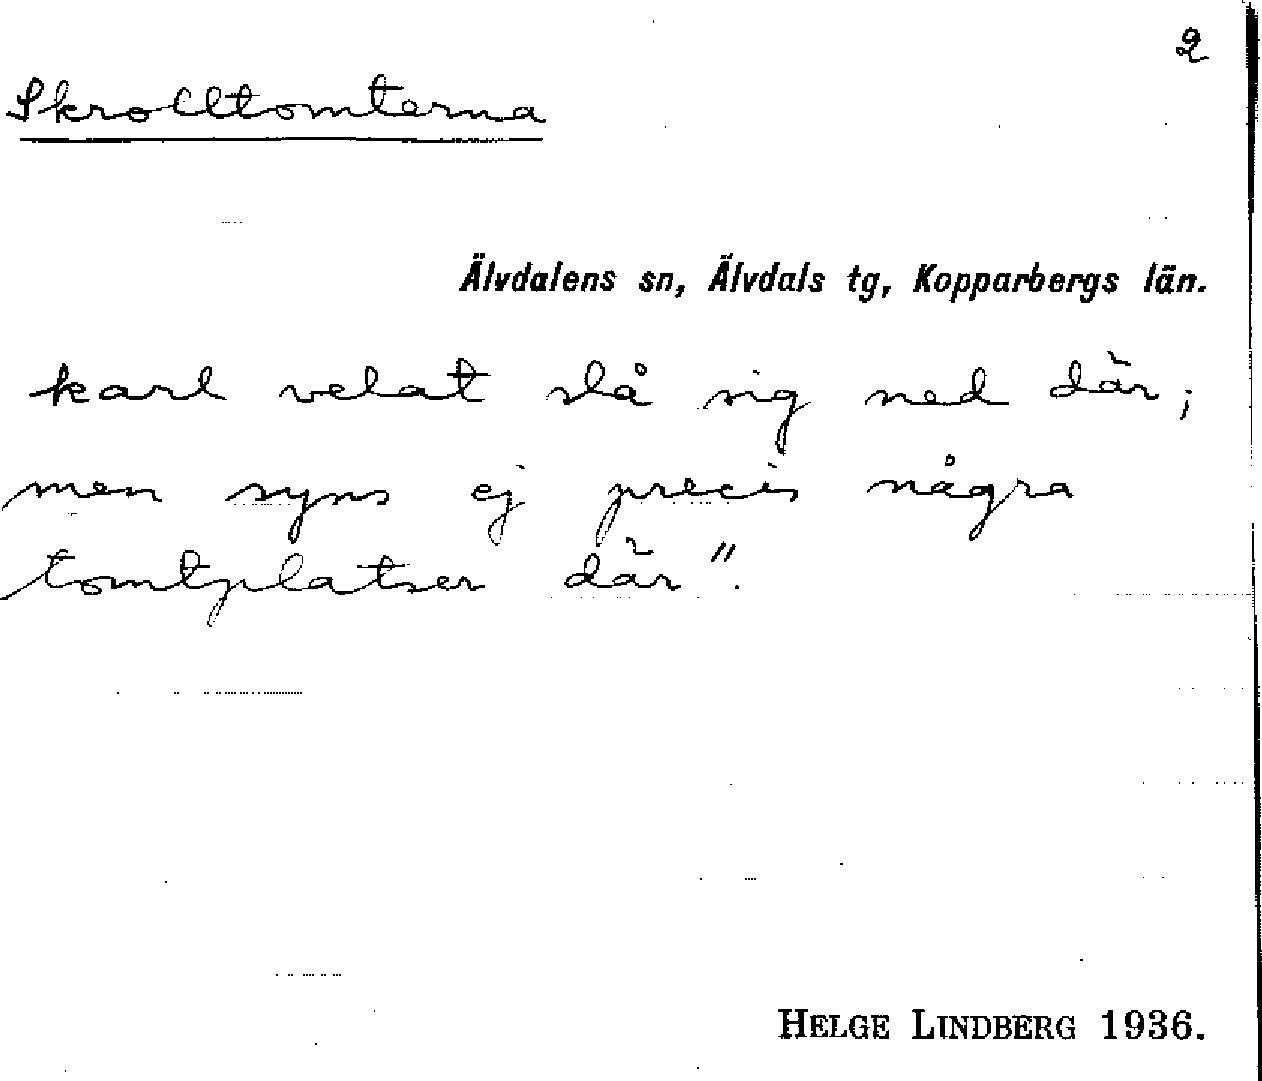 2
Skrolltomterna
Älvdalens sn, Älvdals tg, Kopparbergs län.
karl velat slå sig ned där;
men syns ej precis några
tomtplatser där".
HELGE LINDBERG 1936.